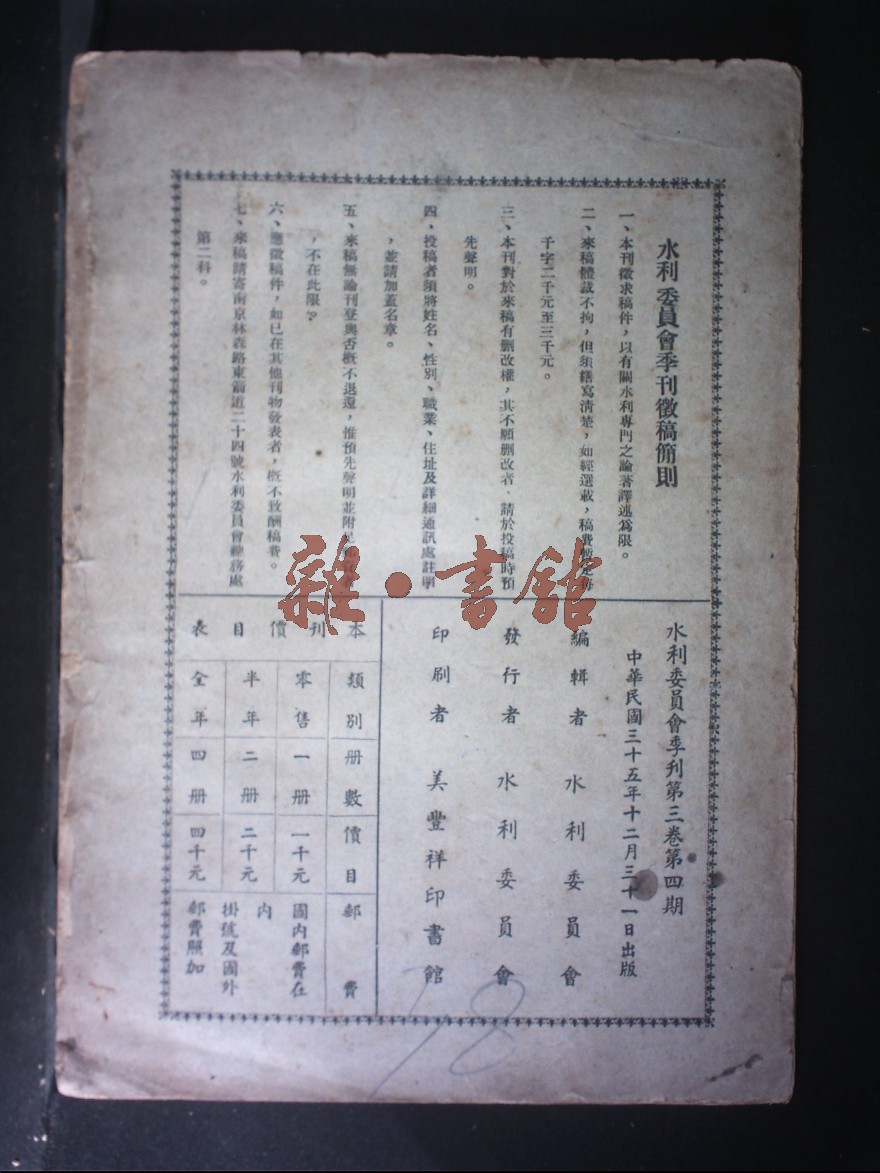 水利委員會季刊徵稿簡則
一、本刊徵求稿件，以有關水利專門之論著譯述為限。
二、來稿體裁不拘，但須繕寫清楚，如經選載，稿費暫定每
千字二千元至三千元。
三、本刊對於來稿有刪改權，其不願刪改者、請於投稿時預
先聲明。
四、投稿者須將姓名、性別、職業、住址及詳細通訊處註明
，並請加蓋名章。
五、來稿無論刊登與否概不退還，惟預先聲明並附足
，不在此限。
六、應徵稿件，如已在其他刊物發表者，概不致酬稿費。
七、來稿請寄南京林森路東箭道二十四號水利委員會總務處
第二科。
水利委員會季刊第三卷第四期
中華民國三十五年十二月三十一日出版
編輯者 水利委員會
發行者 水利委員會
印刷者 美豐祥印書館
本刊價目表
類別 册數 價目 郵費
零售 一册 一千元 國內郵費在
半年 二册 二千元 內
掛號及國外
全年 四册 四千元 郵費照加
雜·書館
18